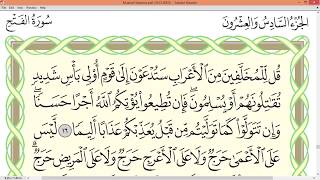 الجزء السادس والعشرون
سورة الفتح
قُل لِّلْمُخَلَّفِينَ مِنَ ٱلْأَعْرَابِ سَتُدْعَوْنَ إِلَىٰ قَوْمٍ أُو۟لِى بَأْسٍ شَدِيدٍ
تُقَٰتِلُونَهُمْ أَوْ يُسْلِمُونَ ۖ فَإِن تُطِيعُوا۟ يُؤْتِكُمُ ٱللَّهُ أَجْرًا حَسَنًا ۖ
وَإِن تَتَوَلَّوْا۟ كَمَا تَوَلَّيْتُم مِّن قَبْلُ يُعَذِّبْكُمْ عَذَابًا أَلِيمًا ١٦ لَّيْسَ
عَلَى ٱلْأَعْمَىٰ حَرَجٌ وَلَا عَلَى ٱلْأَعْرَجِ حَرَجٌ وَلَا عَلَى ٱلْمَرِيضِ حَرَجٌ ۗ